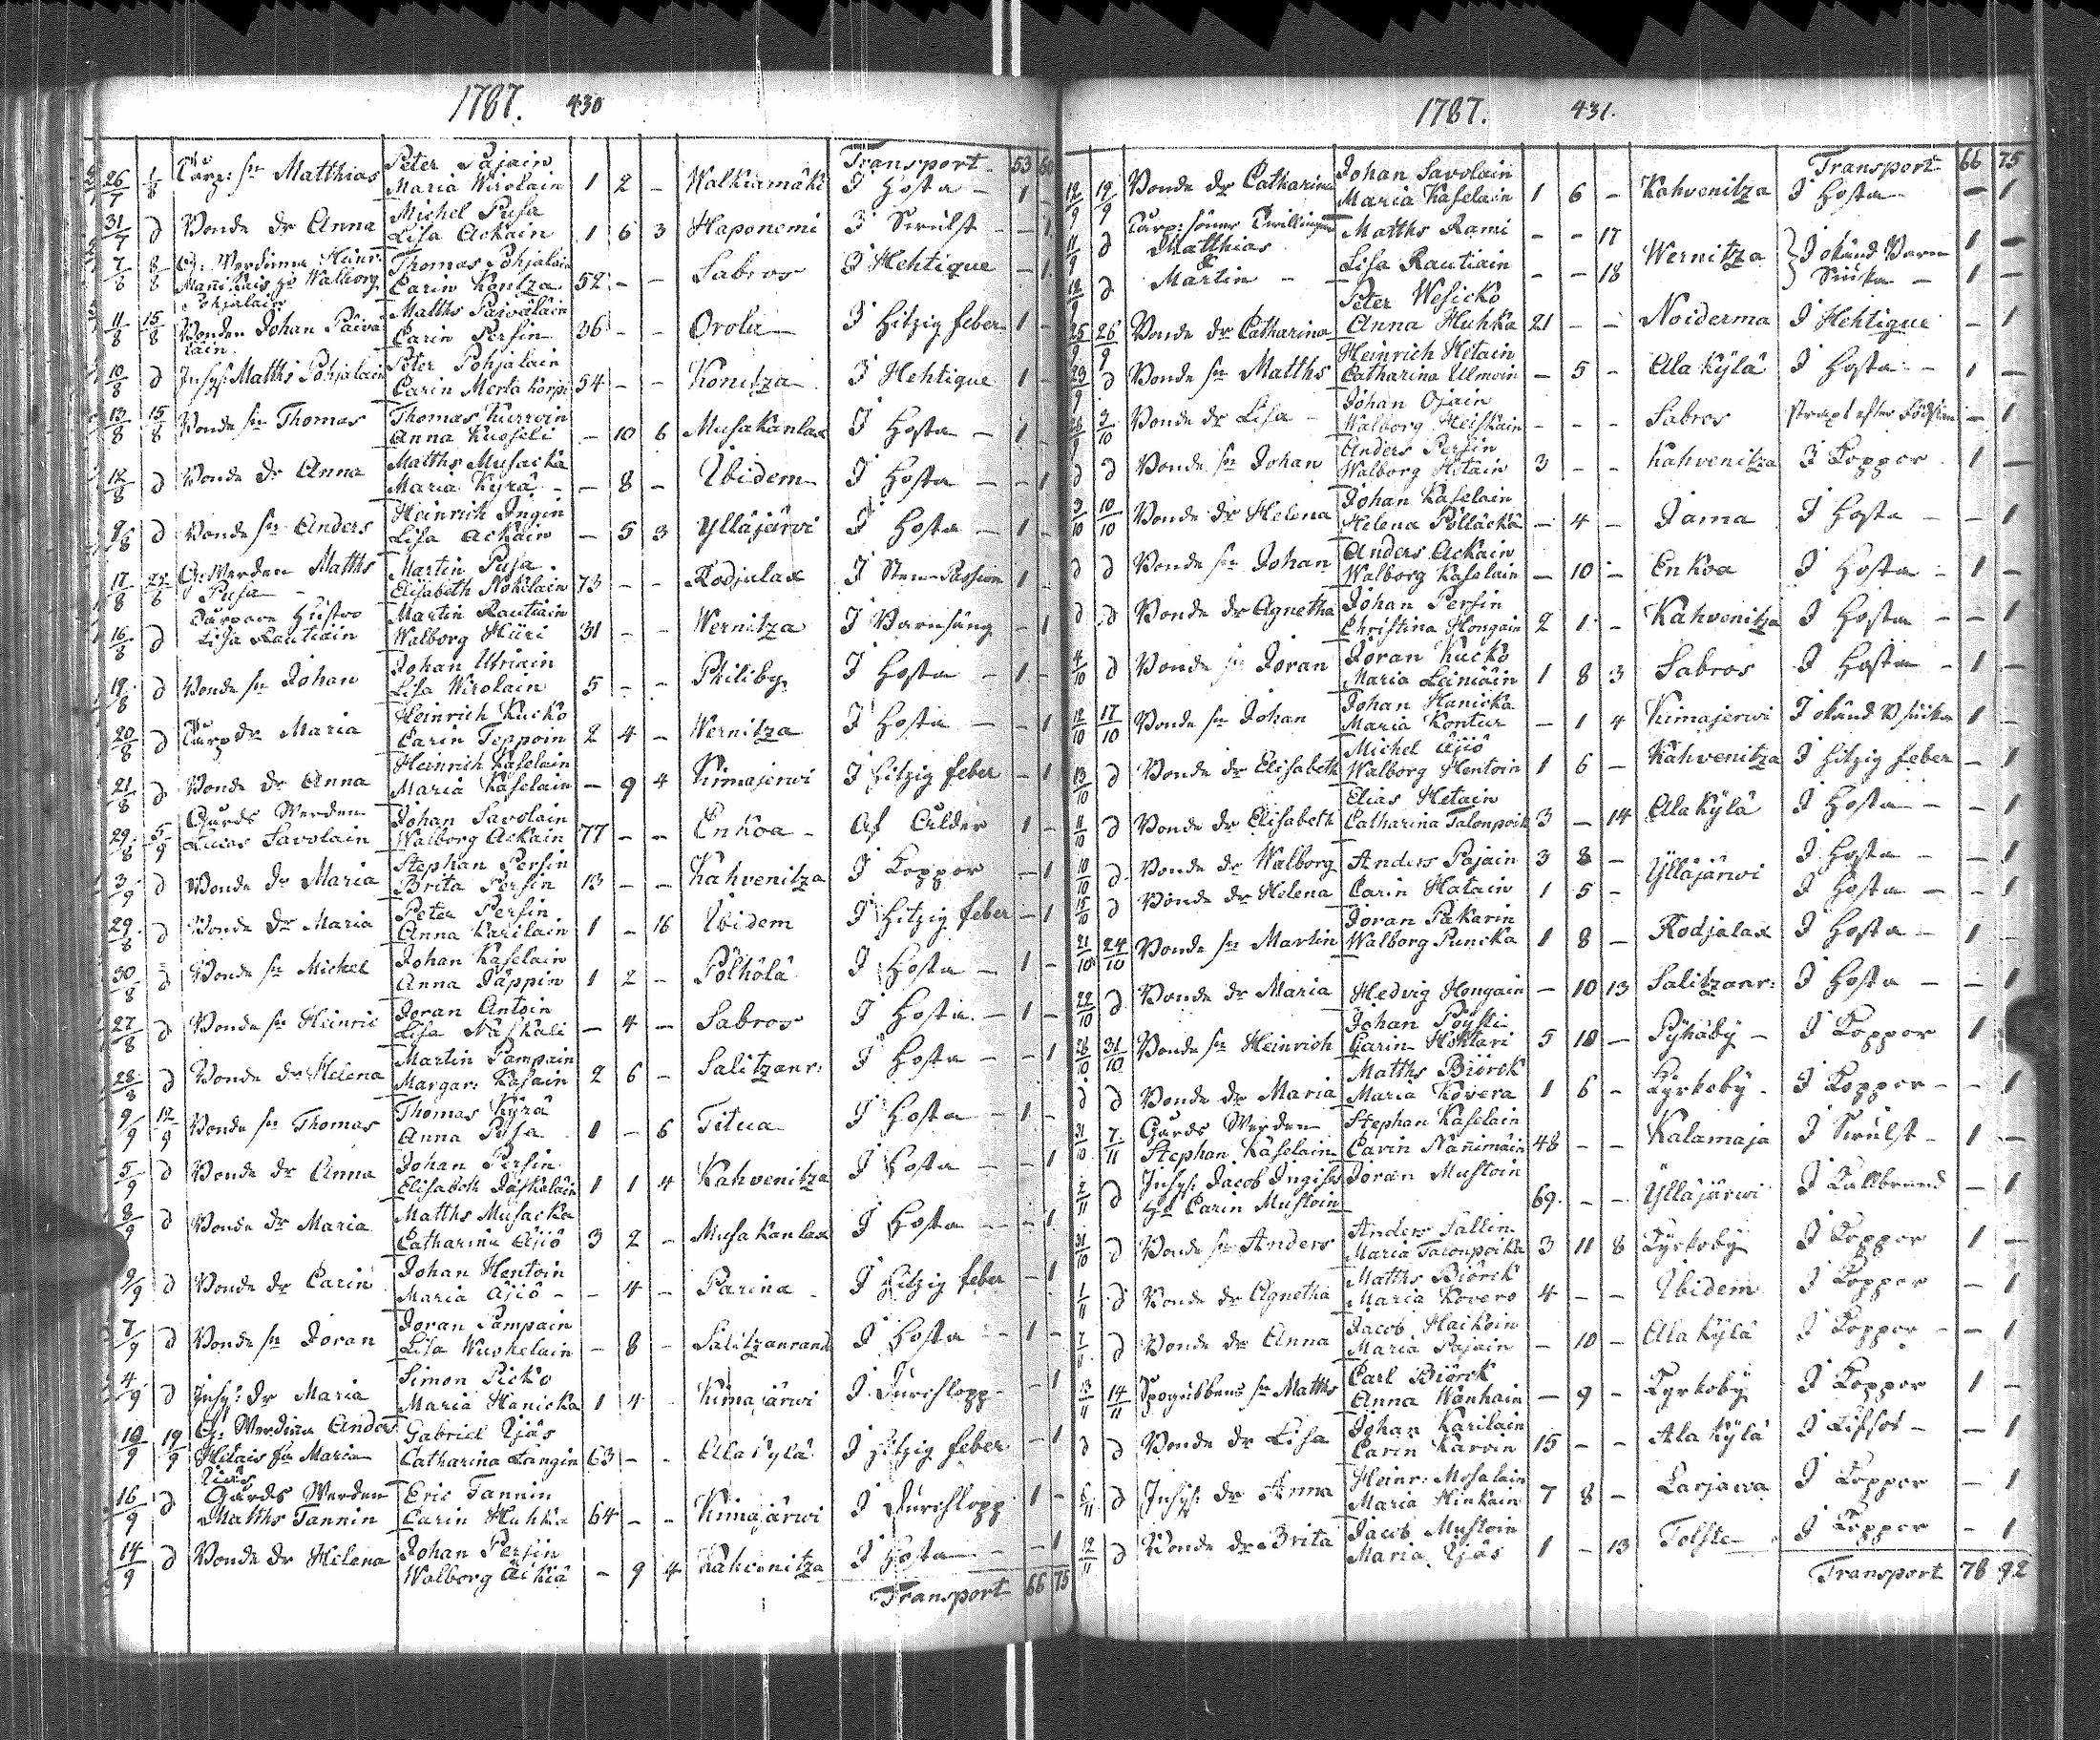 1787. 430
Transport 53 60
26/7 1/8 Torp: sn Matthias Peter Pajain
Maria Wirolain 1 2 - Walkiamäki I Hosta - 1 -
31/7 d Bonde dr Anna Michel Pusa
Lisa Ackain 1 6 3 Haponemi I Swulst - - 1
7/8 8/8 G: Werdinna Heinr: Thomas Pohjalain
Walborg Carin Kontza 52 - - Sabros I Hehtique - 1
Pohjalain
11/8 15/8 Bonden Johan Päivä Matths Paivälain
lain Carin Persin 36 - - Orola I Hitzig feber 1 -
10/8 d Inhys: Matths Pohjalain Peter Pohjalain
Carin Merta Korpi 54 - - Konitza I Hehtique 1 -
13/8 15/8 Bonde sn Thomas Thomas Kurwin
Anna Kuoseli - 10 6 Musakanlax I Hosta - 1 -
12/8 d Bonde dr Anna Matths Musacka
Maria Kyrä - - 8 - Ibidem I Hosta - - 1
9/8 d Bonde sn Anders Heinrich Ingin
Lisa Ackain - 5 3 Ylläjärvi I Hosta - 1 -
17/8 22/8 G: Werden Matths Martin Pusa
Pusa - Elisabeth Nokelain 73 - - Rodjalax I Sten-Passion 1 -
16/8 d Torpare Hustro Martin Rautiain
Lisa Rautiain Walborg Hüri 31 - - Wernitza I Barnsäng - 1
19/8 d Bonde sn Johan Johan Utriain
Lisa Wirolain 5 - - Philiby I Hosta - 1 -
20/8 d Torp dr Maria Heinrich Kucko
Carin Teppoin 2 4 - Wernitza I Hosta - - 1
21/8 d Bonde dr Anna Heinrich Kaselain
Maria Kaselain - 9 4 Kimajerwi I Hitzig feber - 1
29/8 5/9 Gårds Werden Johan Savolain
Lucas Savolain Walborg Ackain 77 - - Enkoa - Af Ålder 1 -
3/9 d Bonde dr Maria Stephan Persin
Brita Persin 13 - - Kahvenitza I Koppor - 1
29/8 d Bonde dr Maria Peter Persin
Anna Karilain 1 - 16 Ibidem I Hitzig feber - 1
30/8 d Bonde sn Michel Johan Kaselain
Anna Jäppin 1 2 - Pölhölä I Hosta - 1 -
27/8 d Bonde sn Heinric Joran Antoin
Lisa Naskali - 4 - Sabros I Hosta - 1 -
28/8 d Bonde dr Helena Martin Pampain
Margar: Kasain 2 6 - Salitzanr: I Hosta - - 1
9/9 12/9 Bonde sn Thomas Thomas Kyrä
Anna Pusa 1 - 6 Titua I Hosta - 1 -
5/9 d Bonde dr Anna Johan Persin
Elisabeth Jaskelain 1 1 4 Kahvenitza I Hosta - - 1
8/9 d Bonde dr Maria Matths Musacka
Catharina Äjiö 3 2 - Musakanlax I Hosta - - 1
9/9 d Bonde dr Carin Johan Hentoin
Maria Äjiö - - 4 - Parina I Hitzig feber - 1
7/9 d Bonde sn Joran Joran Pampain
Lisa - 8 - Salitzanrand I Hosta - 1 -
4/9 d Inhys: dr Maria Simon Picko
Maria Hanicka 1 4 - Kimajärwi I Durchlopp - 1
19/9 G: Werdina Anders Gabriel Ijäs
Hetais Maria Catharina Längin 63 - - Alakylä I Hitzig feber - 1
Ijäs
16/9 d Gårds Werden Eric Tannin
Matths Tannin Carin Huhka 64 - - Kimajärwi I Durchlopp 1 -
14/9 d Bonde dr Helena Johan Persin
Walborg Äikiä - 9 4 Kahvenitza I Hosta - - 1
Transport 66 75
1787. 431.
Transport 66 75
12/9 19/9 Bonde dr Catharina Johan Savolain
Maria Kaselain 1 6 - Kahvenitza I Hosta - - 1
Torp: söner Twillingar
11/9 d Matthias Matths Rami - - 17 Wernitza I okänd Barn 1 -
12/9 d Martin - Lisa Rautiain - - 18 Siuka - 1 -
25/9 26/9 Bonde dr Catharina Peter Wesicko
Anna Huhka 21 - - Noiderma I Hehtique - 1
29/9 d Bonde sn Matths Heinrich Hetain
Catharina Ulmoin - 5 - Alakylä I Hosta - 1 -
3/10 Bonde dr Lisa - Johan Ojain
Walborg Heiskain - - - Sabros strax efter Födslen - 1
d d Bonde sn Johan Anders Persin
Walborg Hetain 3 - - Kahvenitza I Koppor 1 -
3/10 10/10 Bonde dr Helena Johan Kaselain
Helena Pölläckä - 4 - Jama I Hosta - - 1
d d Bonde sn Johan Anders Ackain
Walborg Kaselain - 10 - Enkoa I Hosta - 1 -
d d Bonde dr Agnetha Johan Persin
Christina Hongain 2 1 - Kahvenitza I Hosta - - 1
4/10 d Bonde sn Joran Joran Kucko
Maria Leiniäin 1 8 3 Sabros I Hosta - 1 -
12/10 17/10 Bonde sn Johan Johan Hanicka
Maria Kontur - 1 4 Kimajerwi I okänd B siuka 1 -
13/10 d Bonde dr Elisabeth Michel Äjiö
Walborg Hentoin 1 6 - Kahvenitza I Hitzig feber - 1
11/10 d Bonde dr Elisabeth Elias Hetain
Catharina Talonpoik 3 - 14 Alakylä I Hosta - - 1
10/10 d Bonde dr Walborg Anders Pajain 3 8 - Ylläjärwi I Hosta - - 1
15/10 d Bonde dr Helena Carin Hatain 1 5 - I Hosta - - 1
21/10 24/10 Bonde sn Martin Joran Pakarin
Walborg Puncka 1 8 - Rodjalax I Hosta - 1 -
22/10 d Bonde dr Maria Hedvig Hongain - 10 13 Salitzanr: I Hosta - - 1
26/10 31/10 Bonde sn Heinrich Johan Pöysti
Carin Hohtari 5 10 - Pyhäby - I Koppor 1 -
d d Bonde dr Maria Matths Biörck
Maria Kovera 1 6 - Kyrkoby - I Koppor - - 1
31/10 7/11 Gårds Werden Stephan Kaselain
Stephan Kaselain Carin Näniimäin 48 - - Kalamaja I Swulst - 1 -
2/11 d Inhys: Jacob Ingis Joran Mustoin
Carin Mustoin 69 - - Ylläjärwi I Kallbrand - 1
31/10 d Bonde sn Anders Anders Sallin
Maria Talonpoika 3 11 8 Kyrkoby I Koppor 1 -
1/11 d Bonde dr Agnetha Matths Biörck
Maria Kovero 4 - - Ibidem I Koppor - 1
7/11 d Bonde dr Anna Jacob Haikoin
Maria Pajain - 10 - Alakylä I Koppor - - 1
13/11 14/11 Spogubbens sn Matths Carl Biörck
Anna Wanhain - 9 - Kyrkoby I Koppor 1 -
d d Bonde dr Lisa Johan Karilain
Carin Karvin 15 - - Alakylä I Lifsot - - 1
6/11 d Inhys: dr Anna Heinr: Mosalain
Maria Hinkain 7 8 - Larjava I Koppor - 1
12/11 d Bonde dr Brita Jacob Mustoin
Maria Ijäs 1 - 13 Tolste I Koppor - 1
Transport 78 92